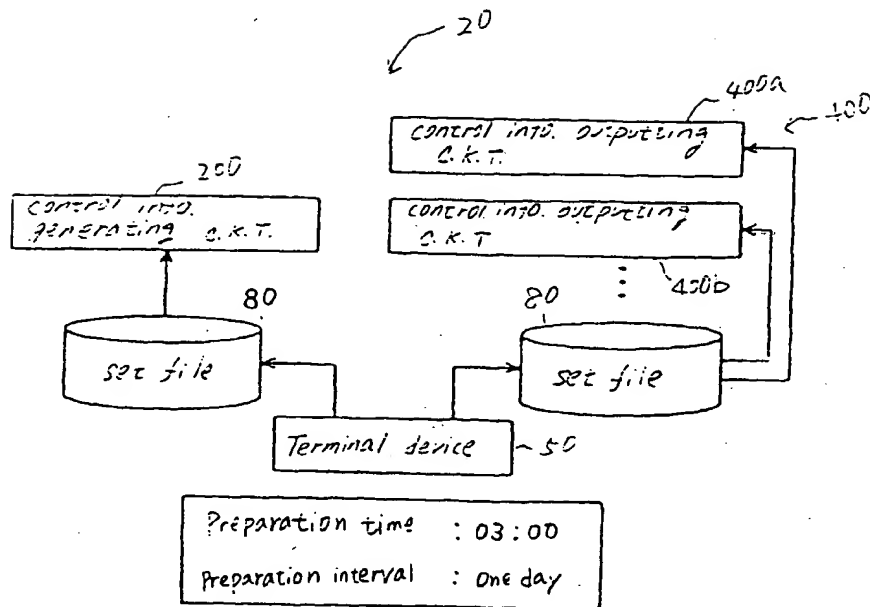 20
400a
400
control info. outputting
C.K.T.
200
control info.
generating C.K.T.
control info. outputting
C.K.T
400b
80
80
set file
set file
Terminal device
50
Preparation time : 03:00
Preparation interval : One day